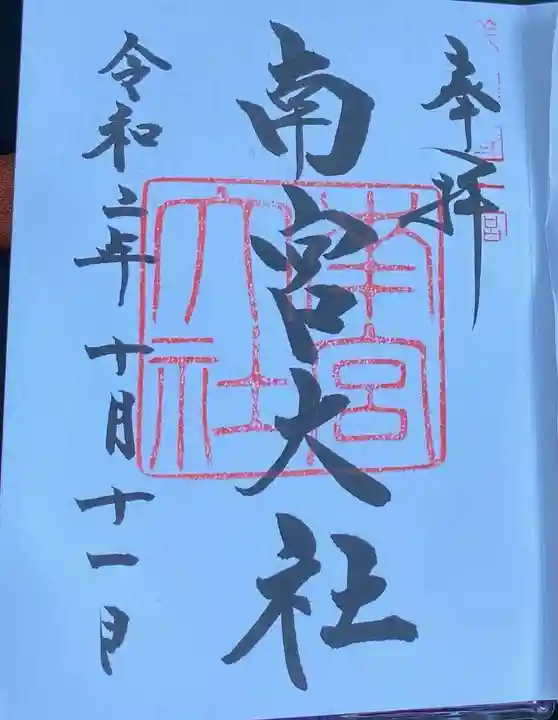 奉拝
南宮大社
南宮大社
令和二年十月十一日